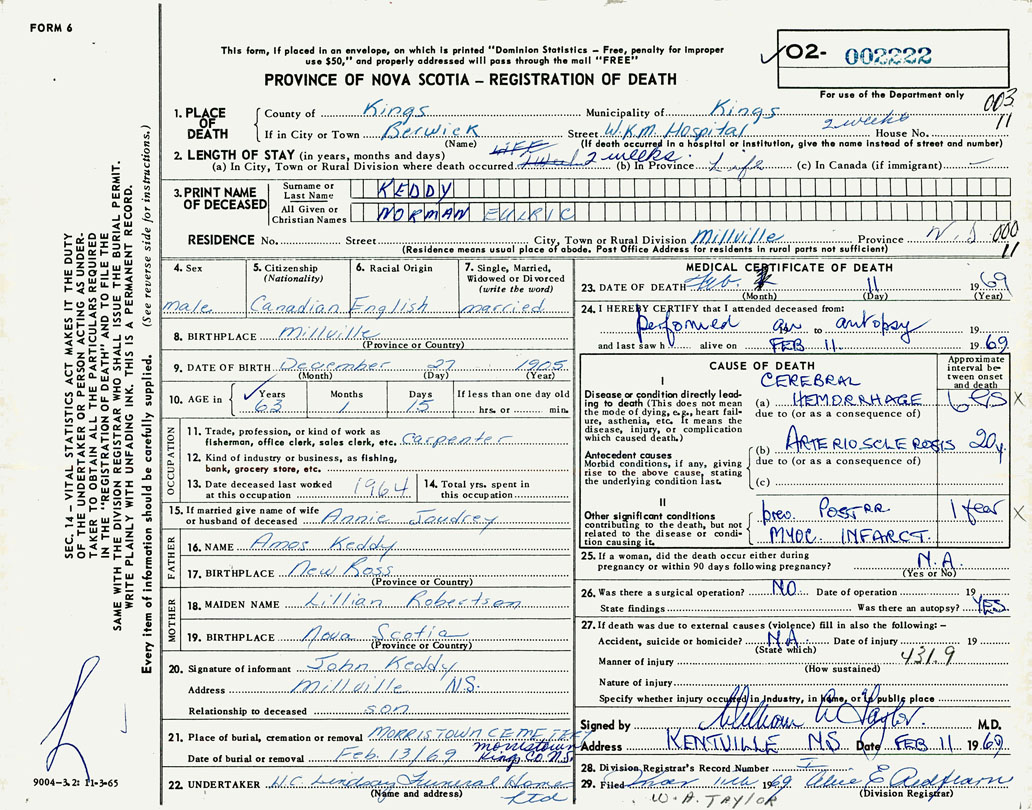 FORM 6
This form, if placed in an envelope, on which is printed "Dominion Statistics – Free, penalty for improper
use $50," and properly addressed will pass through the mail "FREE"
PROVINCE OF NOVA SCOTIA – REGISTRATION OF DEATH
O2- 002222
For use of the Department only
003
11
1. PLACE OF DEATH
County of Kings Municipality of Kings
If in City or Town Berwick Street W.K.M. Hospital 2 weeks House No.
(Name) (If death occurred in a hospital or institution, give the name instead of street and number)
2. LENGTH OF STAY (in years, months and days) Life
(a) In City, Town or Rural Division where death occurred 2 weeks. (b) In Province Life (c) In Canada (if immigrant) —
3. PRINT NAME OF DECEASED
Surname or Last Name KEDDY
All Given or Christian Names NORMAN EULRIC
RESIDENCE No. Street City, Town or Rural Division Millville Province N.S. 000
11
(Residence means usual place of abode. Post Office Address for residents in rural parts not sufficient)
4. Sex
male
5. Citizenship (Nationality)
Canadian
6. Racial Origin
English
7. Single, Married, Widowed or Divorced (write the word)
married
8. BIRTHPLACE Millville
(Province or Country)
9. DATE OF BIRTH December 27 1905
(Month) (Day) (Year)
10. AGE in Years Months Days If less than one day old
63 1 15 hrs. or min.
OCCUPATION
11. Trade, profession, or kind of work as
fisherman, office clerk, sales clerk, etc. Carpenter
12. Kind of industry or business, as fishing,
bank, grocery store, etc.
13. Date deceased last worked at this occupation 1964
14. Total yrs. spent in this occupation
15. If married give name of wife
or husband of deceased Annie Joudrey
FATHER
16. NAME Amos Keddy
17. BIRTHPLACE New Ross
(Province or Country)
MOTHER
18. MAIDEN NAME Lillian Robertson
19. BIRTHPLACE Nova Scotia
(Province or Country)
20. Signature of informant John Keddy
Address Millville N.S.
Relationship to deceased son
21. Place of burial, cremation or removal MORRISTOWN CEMETERY
Date of burial or removal Feb. 13/69 Morristown
Kings CO. N.S.
22. UNDERTAKER H.C. Lindsay Funeral Home
(Name and address) Ltd
MEDICAL CERTIFICATE OF DEATH
23. DATE OF DEATH Feb. 11 1969
(Month) (Day) (Year)
24. I HEREBY CERTIFY that I attended deceased from:
performed an to autopsy 19
and last saw h alive on FEB 11 1969
CAUSE OF DEATH
Approximate interval between onset and death
I
Disease or condition directly leading to death (This does not mean the mode of dying, e.g., heart failure, asthenia, etc. It means the disease, injury, or complication which caused death.)
CEREBRAL
(a) HEMORRHAGE X
due to (or as a consequence of)
Antecedent causes
Morbid conditions, if any, giving rise to the above cause, stating the underlying condition last.
(b) ARTERIOSCLEROSIS 20y.
due to (or as a consequence of)
(c)
II
Other significant conditions
contributing to the death, but not related to the disease or condition causing it.
prev. POSTRR 1 year X
MYOC. INFARCT.
25. If a woman, did the death occur either during
pregnancy or within 90 days following pregnancy? N.A.
(Yes or No)
26. Was there a surgical operation? NO Date of operation 19
State findings Was there an autopsy? YES
27. If death was due to external causes (violence) fill in also the following: –
Accident, suicide or homicide? NA Date of injury 19
(State which)
Manner of injury 431.9
(How sustained)
Nature of injury
Specify whether injury occurred in Industry, in Home, or in public place
Signed by William A Taylor M.D.
Address KENTVILLE NS Date FEB 11 1969
28. Division Registrar's Record Number I
29. Filed 11th 1969 Alice E Redfearn
(Division Registrar)
W. A. TAYLOR
SEC. 14 – VITAL STATISTICS ACT MAKES IT THE DUTY
OF THE UNDERTAKER OR PERSON ACTING AS UNDER-
TAKER TO OBTAIN ALL THE PARTICULARS REQUIRED
IN THE "REGISTRATION OF DEATH" AND TO FILE THE
SAME WITH THE DIVISION REGISTRAR WHO SHALL ISSUE THE BURIAL PERMIT.
WRITE PLAINLY WITH UNFADING INK. THIS IS A PERMANENT RECORD.
Every item of information should be carefully supplied. (See reverse side for instructions.)
9004-3.2: 11-3-65